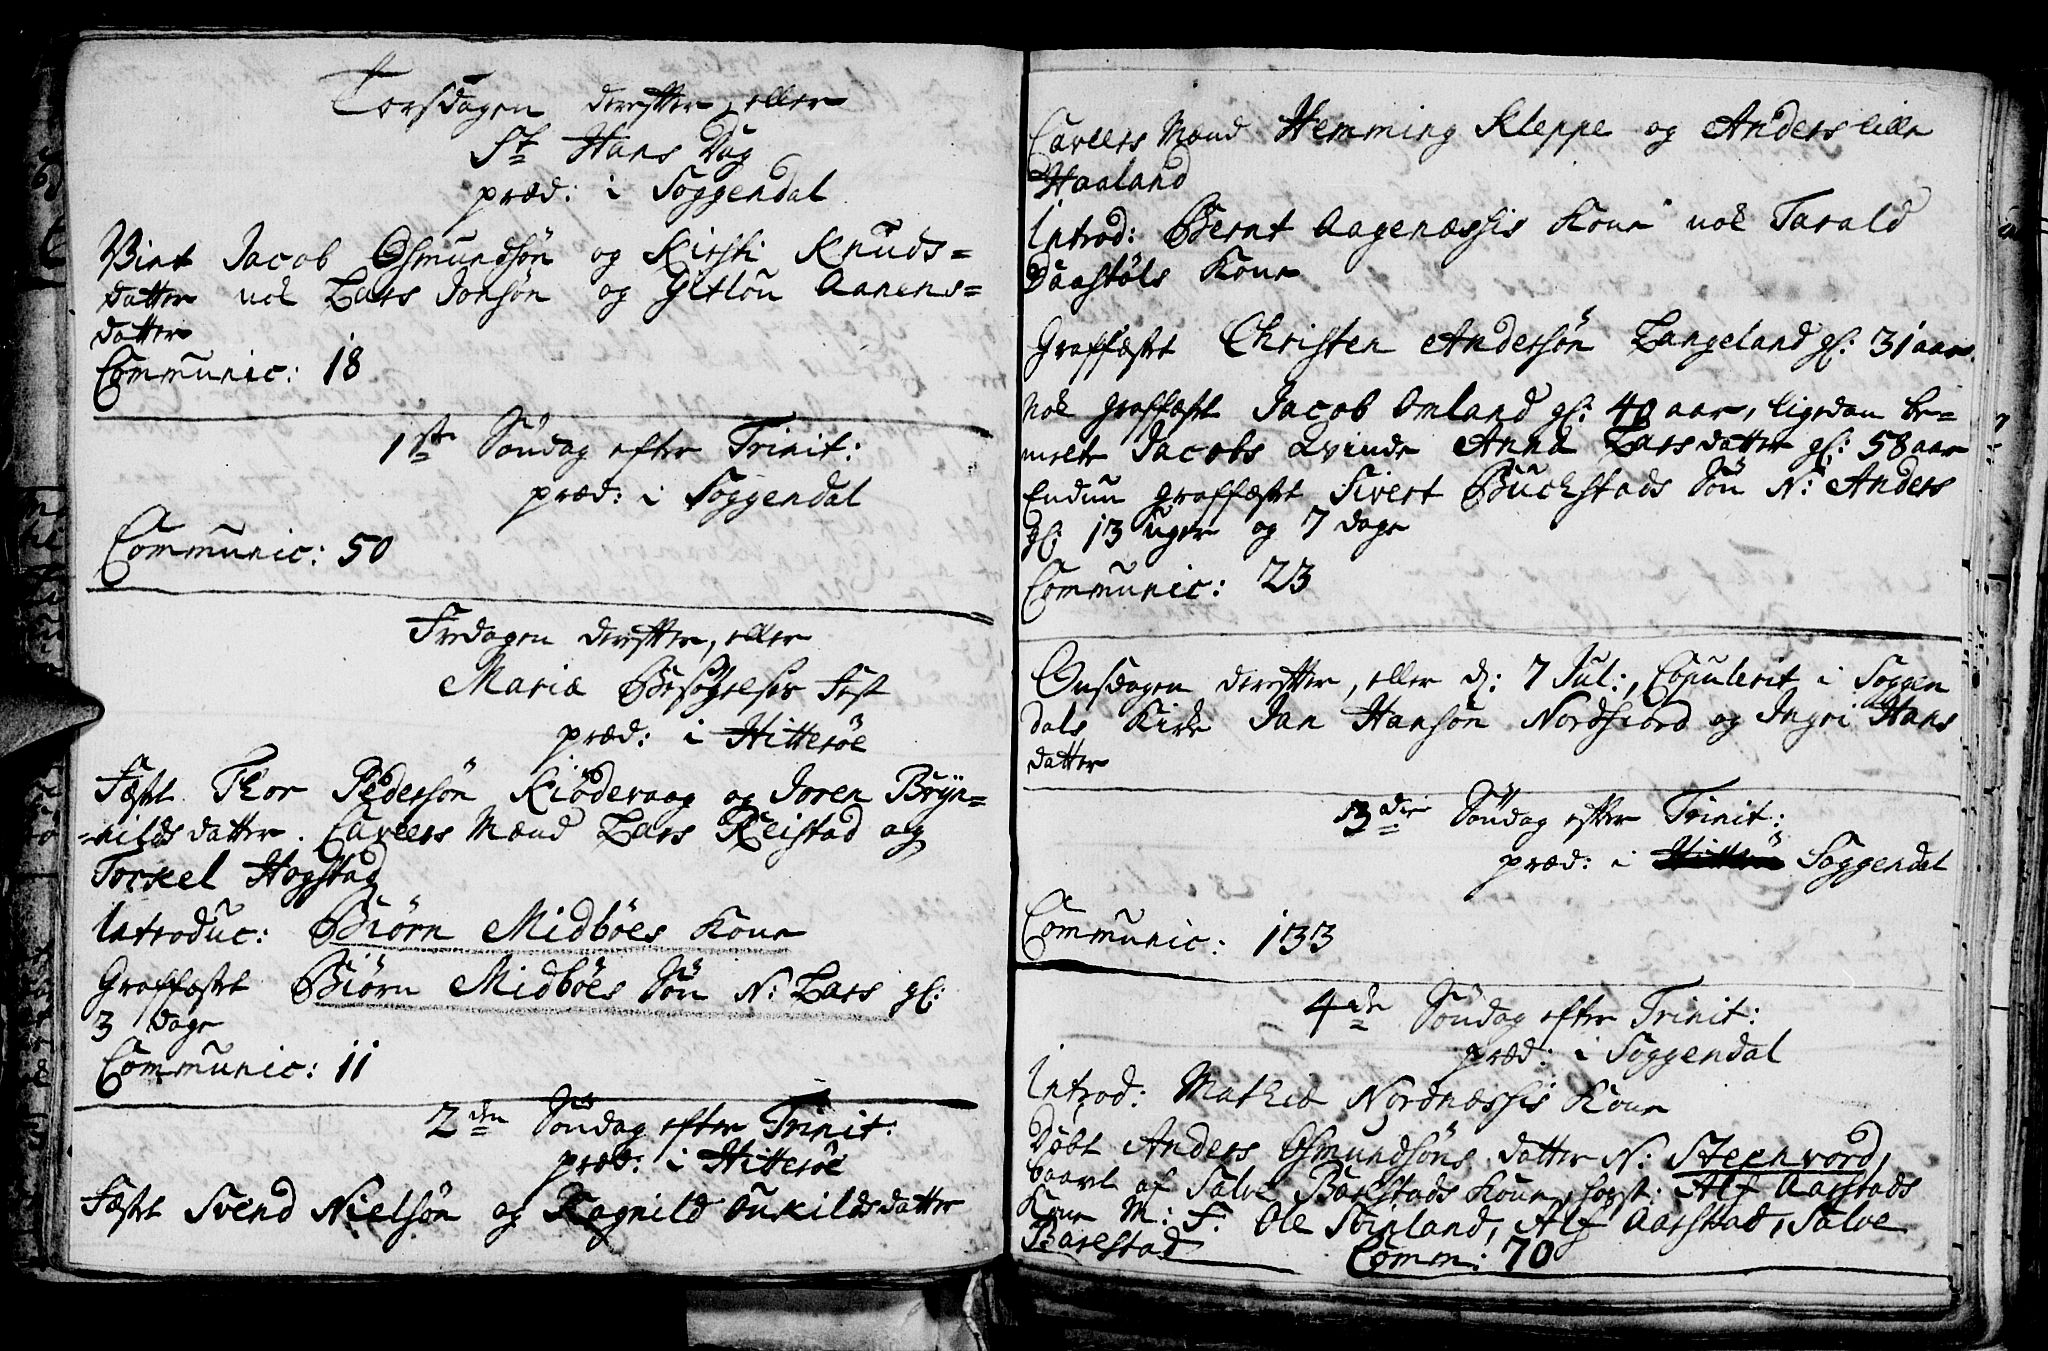 Torsdagen derefter, eller
St Hans Dag
præd: i Soggendal
Viet Jacob Osmundsøn og Kirsti Knuds=
datter nok Lars Jonsøn og Gitlou Aanens=
datter
Communic: 18
1ste Søndag efter Trinit:
præd: i Soggendal
Communic: 50
Fredagen derefter, eller
Mariæ Besøgelses Fest
præd: i Hitterøe
Fæst Thor Pedersøn Kiødevaag og Joren Bryn=
=hilds datter. Caveers Mænd Lars Reistad og
Torkel Hogstad
Introduc: Biørn Midbøes Kone
Graffæstet Biørn Midbøes Søn N: Lars gl:
3 dage
Communic: 11
2den Søndag efter Trinit:
præd: i Hitterøe
Fæstet Svend Nielsøn og Ragnild Ouskilds datter
Caveers Mænd Hemming Kleppe og Anders lille
Haaland
Introd: Bernt Aagenæssis Kone nok Tarald
Daastøls Kone
Graffæstet Christen Andersøn Langeland gl: 31 aar
nok graffæstet Jacob Omland gl: 40 aar, ligedan be=
melte Jacobs Qvinde Anna Larsdatter gl: 58 aar
Endnu graffæstet Sivert Buchstads Søn N: Anders
gl: 13 uger og 7 dage
Communic: 23
Onsdagen derefter, eller d: 7 Jul:, Copulerit i Soggen
dals Kirke Jan Hansøn Nordfiord og Ingri Hans
datter
3die Søndag efter Trinit:
præd: i Soggendal
Communic: 133
4de Søndag efter Trinit:
præd: i Soggendal
Introd: Mathiæ Nordnæssis Kone
Døbt Anders Osmundsøns datter N: Steenvord,
baaret af Salve Barstads Kone, host: Alf Aarstads
Kone M: F. Ole Svinland, Alf Aarstad, Salve
Barestad Comm: 70